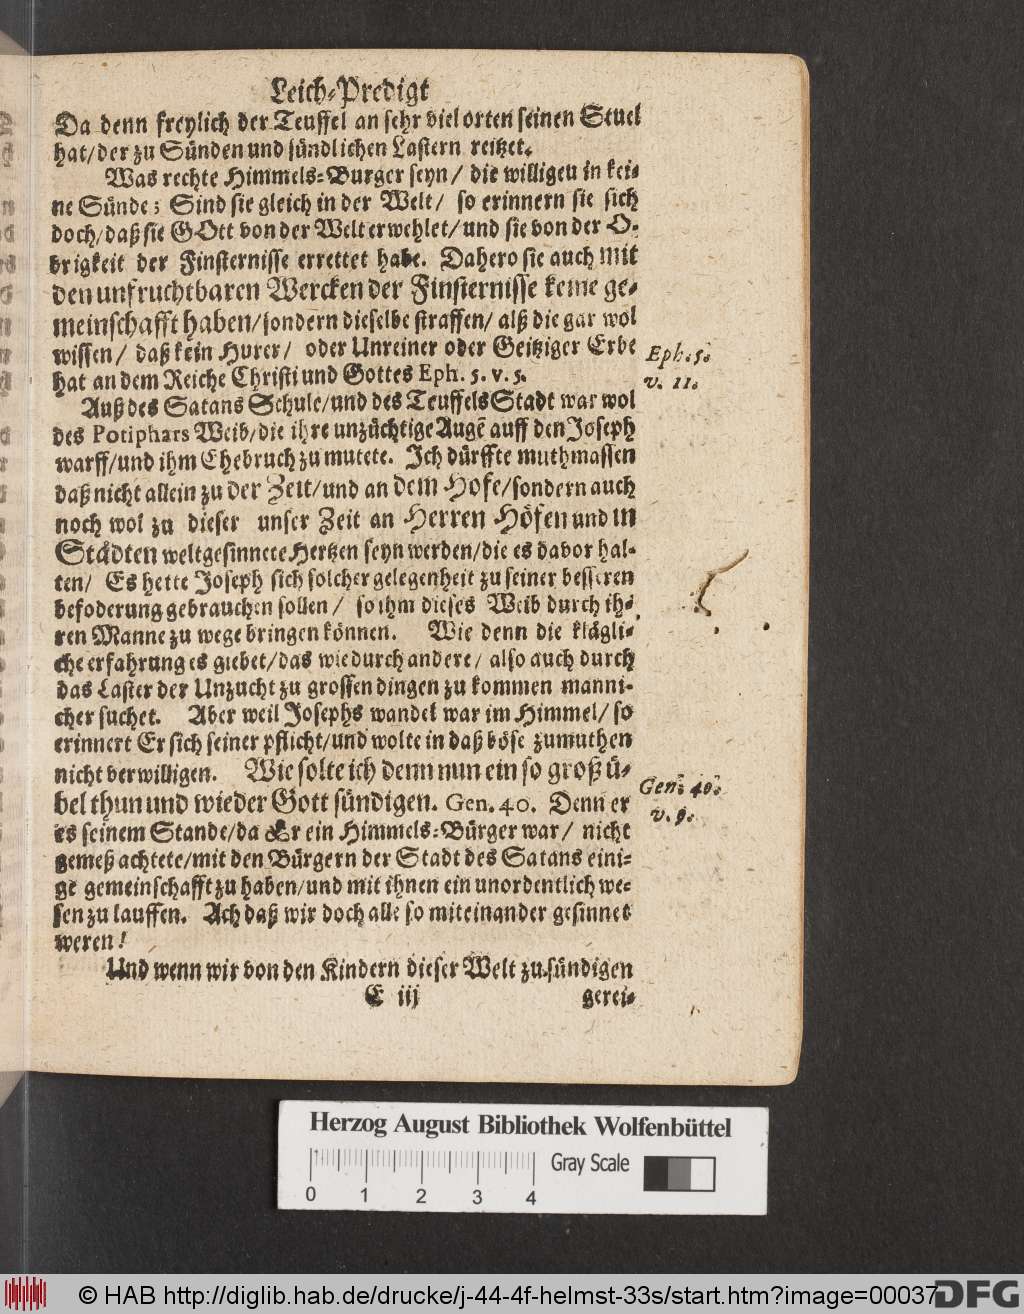 Leich-Predigt
Da denn freylich der Teuffel an sehr viel orten seinen Stuel
hat/ der zu Sünden und sündlichen Lastern reitzet.
Was rechte Himmels-Burger seyn/ die willigen in kei-
ne Sünde; Sind sie gleich in der Welt/ so erinnern sie sich
doch/ daß sie GOtt von der Welt erwehlet/ und sie von der O-
brigkeit der Finsternisse errettet habe. Dahero sie auch mit
den unfruchtbaren Wercken der Finsternisse keine ge-
meinschafft haben/ sondern dieselbe straffen/ alß die gar wol
wissen/ daß kein Hurer/ oder Unreiner oder Geitziger Erbe
hat an dem Reiche Christi und Gottes Eph. 5. v. 5.
Eph. 5.
v. 11.
Auß des Satans Schule/ und des Teuffels Stadt war wol
des Potiphars Weib/ die ihre unzüchtige Augē auff den Joseph
warff/ und ihm Ehebruch zu mutete. Ich dürffte muthmassen
daß nicht allein zu der Zeit/ und an dem Hofe/ sondern auch
noch wol zu dieser unser Zeit an Herren Höfen und in
Städten weltgesinnete Hertzen seyn werden/ die es davor hal-
ten/ Es hette Joseph sich solcher gelegenheit zu seiner besseren
befoderung gebrauchen sollen/ so ihm dieses Weib durch ih-
ren Manne zu wege bringen können. Wie denn die klägli-
che erfahrung es giebet/ das wie durch andere/ also auch durch
das Laster der Unzucht zu grossen dingen zu kommen manni-
cher suchet. Aber weil Josephs wandel war im Himmel/ so
erinnert Er sich seiner pflicht/ und wolte in daß böse zumuthen
nicht verwilligen. Wie solte ich denn nun ein so groß ü-
bel thun und wieder Gott sündigen. Gen. 40. Denn er
Gen. 40.
v. 9.
es seinem Stande/ da Er ein Himmels-Bürger war/ nicht
gemeß achtete/ mit den Bürgern der Stadt des Satans eini-
ge gemeinschafft zu haben/ und mit ihnen ein unordentlich we-
sen zu lauffen. Ach daß wir doch alle so miteinander gesinnet
weren!
Und wenn wir von den Kindern dieser Welt zu sündigen
E iij gerei-
Herzog August Bibliothek Wolfenbüttel
Gray Scale
0 1 2 3 4
© HAB http://diglib.hab.de/drucke/j-44-4f-helmst-33s/start.htm?image=00037
DFG